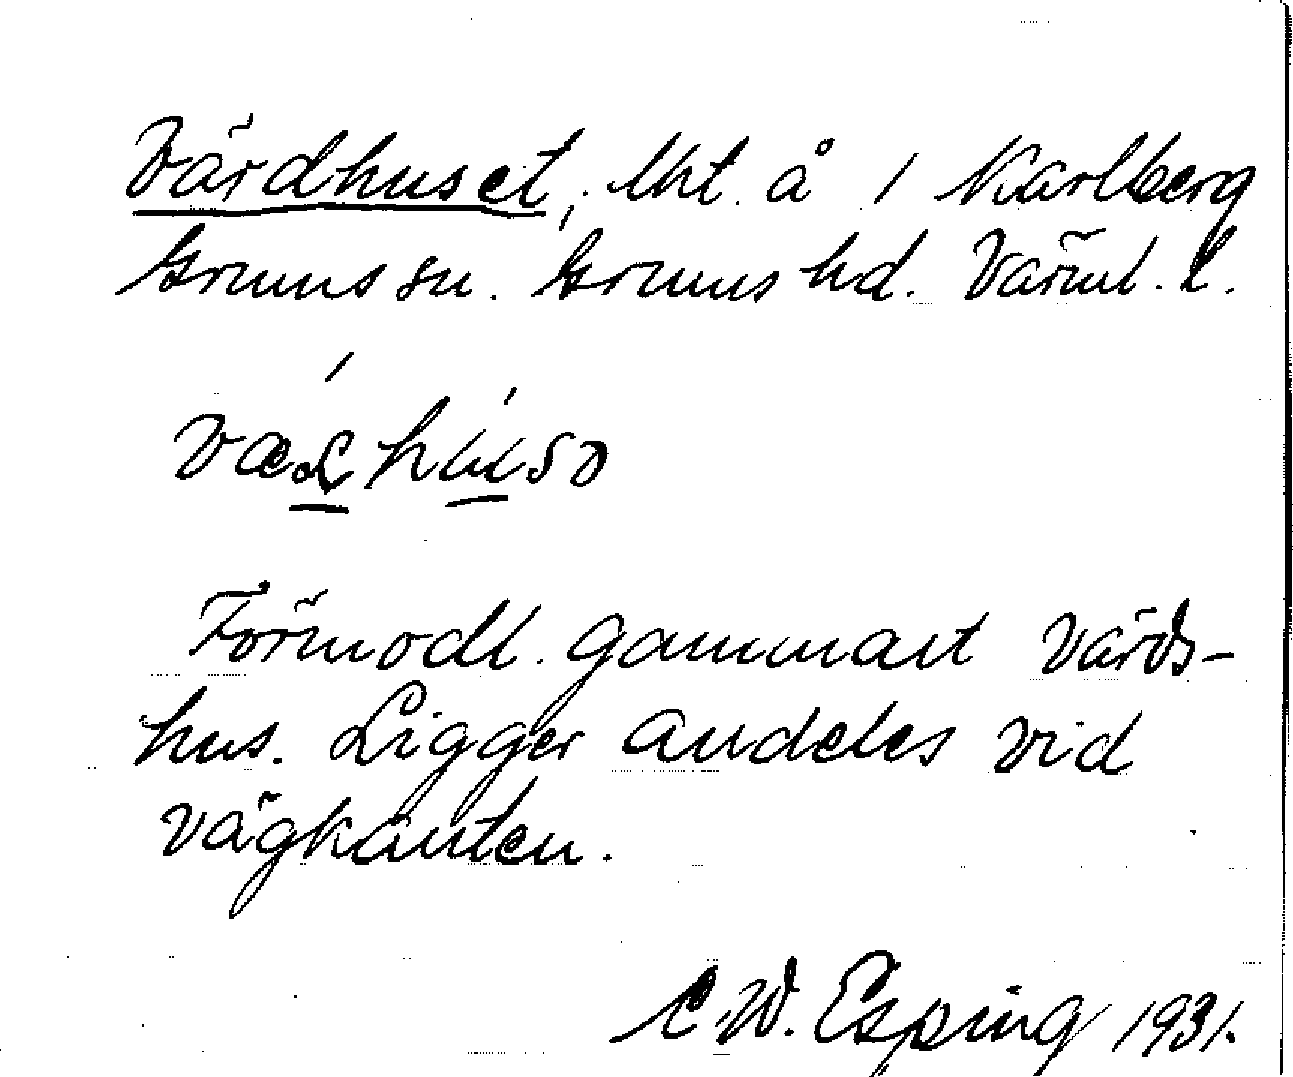 Värdhuset, lht. å 1 Karlberg
Grums sn. Grums hd. Värml. l.
Förmodl. gammart värds-
hus. Ligger andeles vid
vägkanten.
C. W. Esping 1931.